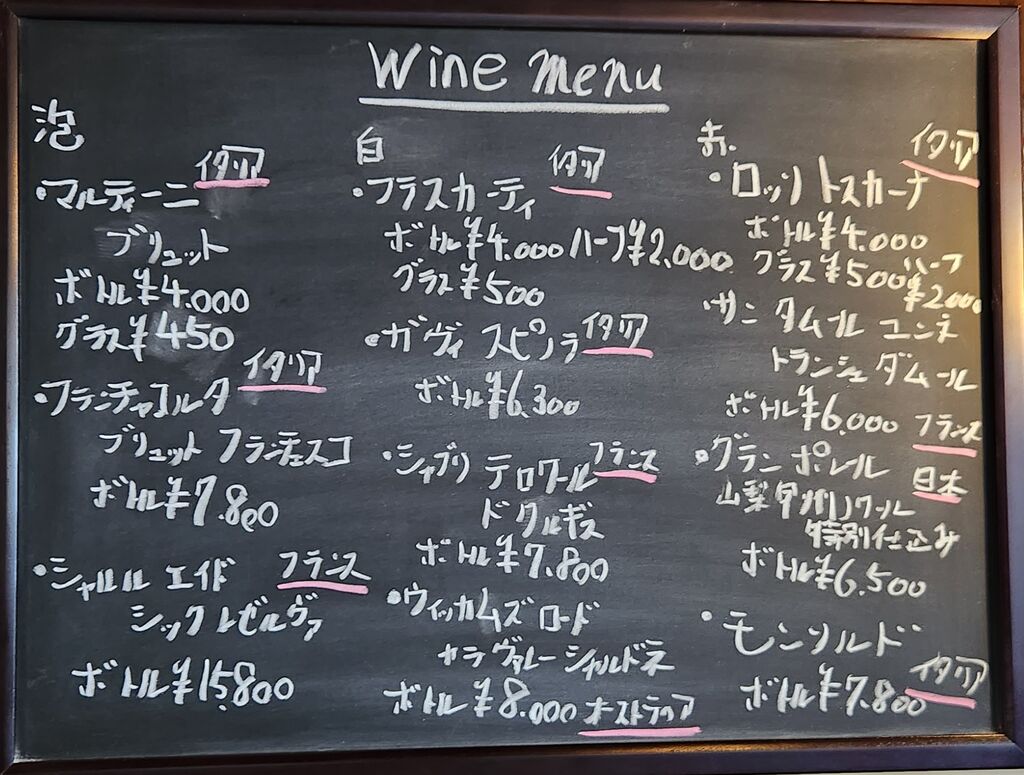 Wine menu
泡
イタリア
・マルティーニ
ブリュット
ボトル¥4.000
グラス¥450
イタリア
・フランチャコルタ
ブリュット フランチェスコ
ボトル¥7.800
・シャルル エイド フランス
シック レゼルヴァ
ボトル¥15.800
白
イタリア
・フラスカーティ
ボトル¥4.000 ハーフ¥2,000
グラス¥500
・ガヴィ スピノラ イタリア
ボトル¥6.300
・シャブリ テロワール フランス
ド クルギス
ボトル¥7.800
・ウィッカムズ ロード
ヤラ ヴァレー シャルドネ
ボトル¥8.000 オーストラリア
赤.
イタリア
・ロッソ トスカーナ
ボトル¥4.000
グラス¥500 ハーフ
¥2000
・サン ダムール ユンヌ
トランシュ ダムール
ボトル¥6.000 フランス
・グランポレール 日本
山梨
特別仕込み
ボトル¥6.500
・モンソルド
イタリア
ボトル¥7.800